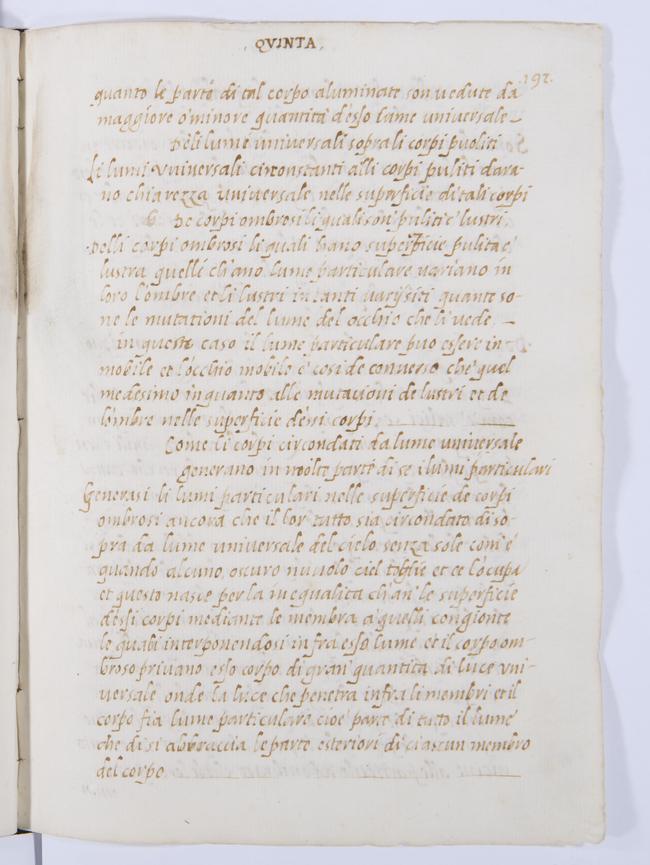 QVINTA.
192.
quanto le parte di tal corpo aluminate son vedute da
maggiore o minore quantita d'esso lume universale
De li lumi universali sopra li corpi puoliti
Li lumi vniversali circonstanti alli corpi puliti dara-
no chiarezza universale nelle superficie di tali corpi
De corpi ombrosi li quali son puliti e lustri
Delli corpi ombrosi li quali hano superficie pulita e
lustra quelli ch'ano lume particulare variano in
loro l'ombre et li lustri in tanti varij siti quante so-
ne le mutationi del lume del occhio che li vede
in questo caso il lume particulare puo essere in-
mobile et l'occhio mobile e cosi de converso che quel
medesimo in quanto alle mutationi de lustri et de
l'ombre nelle superficie d'eni corpi
Come li corpi circondati da lume universale
generano in molte parte di se i lumi particulari
Generasi li lumi particulari nelle superficie de corpi
ombrosi ancora che il lor tutto sia circondato di so-
pra da lume universale del cielo senza sole com'e
quando alcuno oscuro nuvolo ciel toglie et ce l'ocupa
et questo nasce per la inequalita ch'an' le superficie
d'essi corpi mediante le membra a quelli congionte
le quali interponendosi infra esso lume et il corpo om-
broso privano esso corpo di gran quantita di luce vni-
versale onde la luce che penetra infra li membri et il
corpo fia lume particulare cioe parte di tutto il lume
che di si abbraccia le parte esteriori di ciascun membro
del corpo